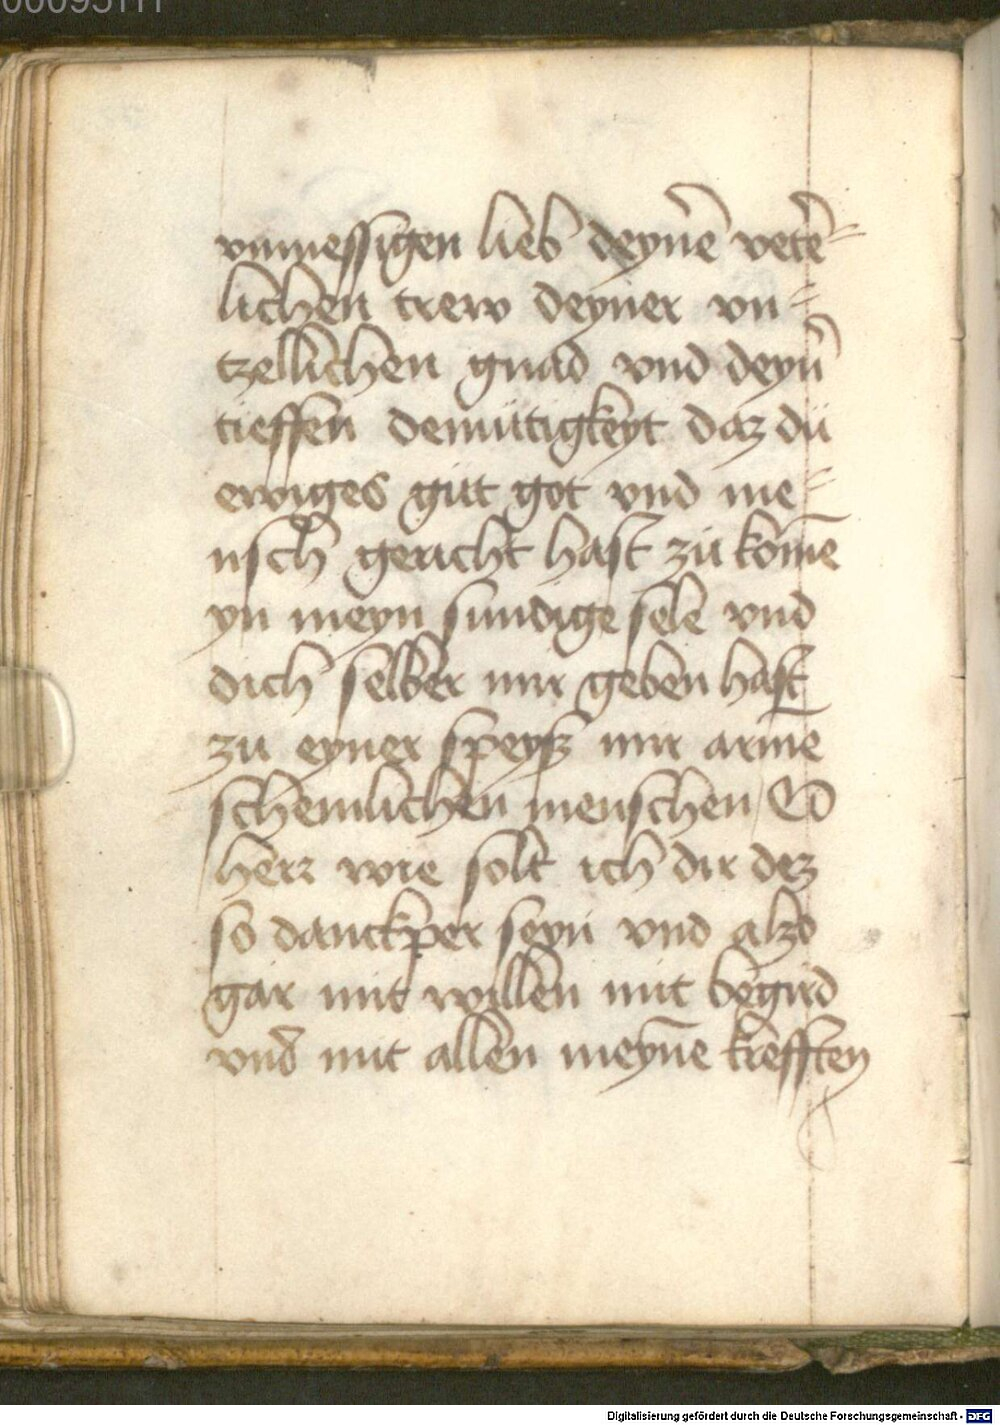 vnmessigen lieb deyn̄e vetē-
lichen trew deyner vn-
tzellichen gnad vnd deyn̄
tieffen demütigkeyt daz dü
ewiges güt got vnd me-
nsch gericht hast zü komē
yn meyn sundige sele vnd
dich selber mir geben hast
zü eyner speysz mir armē
schemlichen menschen / O
herr wie solt ich dir dez
so danckper seyn vnd alzo
gar mit willen mit begird
vnd mit allen meynē krefften
Digitalisierung gefördert durch die Deutsche Forschungsgemeinschaft - DFG